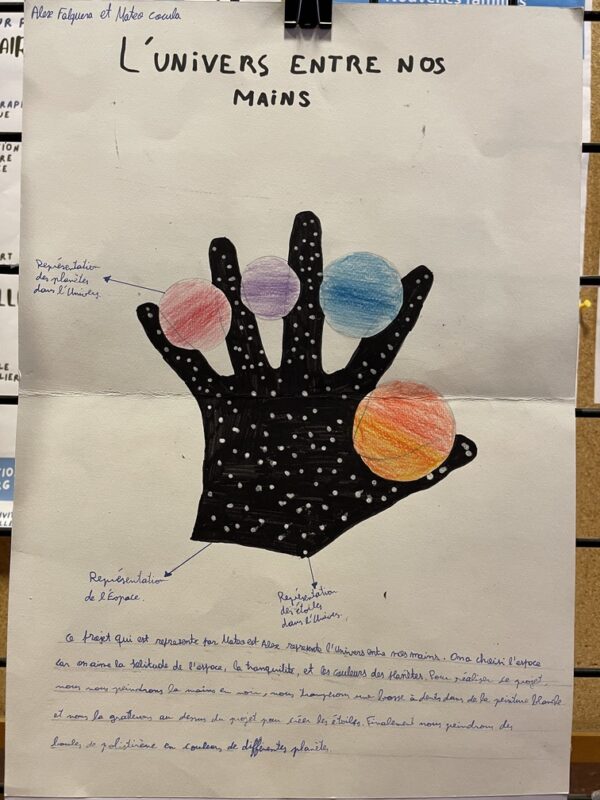 Nouvelles familles
Alex Falguera et Mateo cocula
L'UNIVERS ENTRE NOS
MAINS
Représentation
des planètes
dans l'Univers.
Représentation
de l'Espace.
Représentation
des étoiles
dans l'Univers.
Ce projet qui est representé par Mateo et Alex represente l'Univers entre nos mains. On a choisi l'espace
car on aime la solitude de l'espace, la tranquilité, et les couleurs des planètes. Pour réaliser ce projet,
nous nous peindrons la mains en noir, nous tramperons une brosse à dents dans de la peinture blanche
et nous la gratterons au dessus du projet pour créer les étoiles. Finalement nous peindrons des
boules de polistirène en couleurs de différentes planètes.